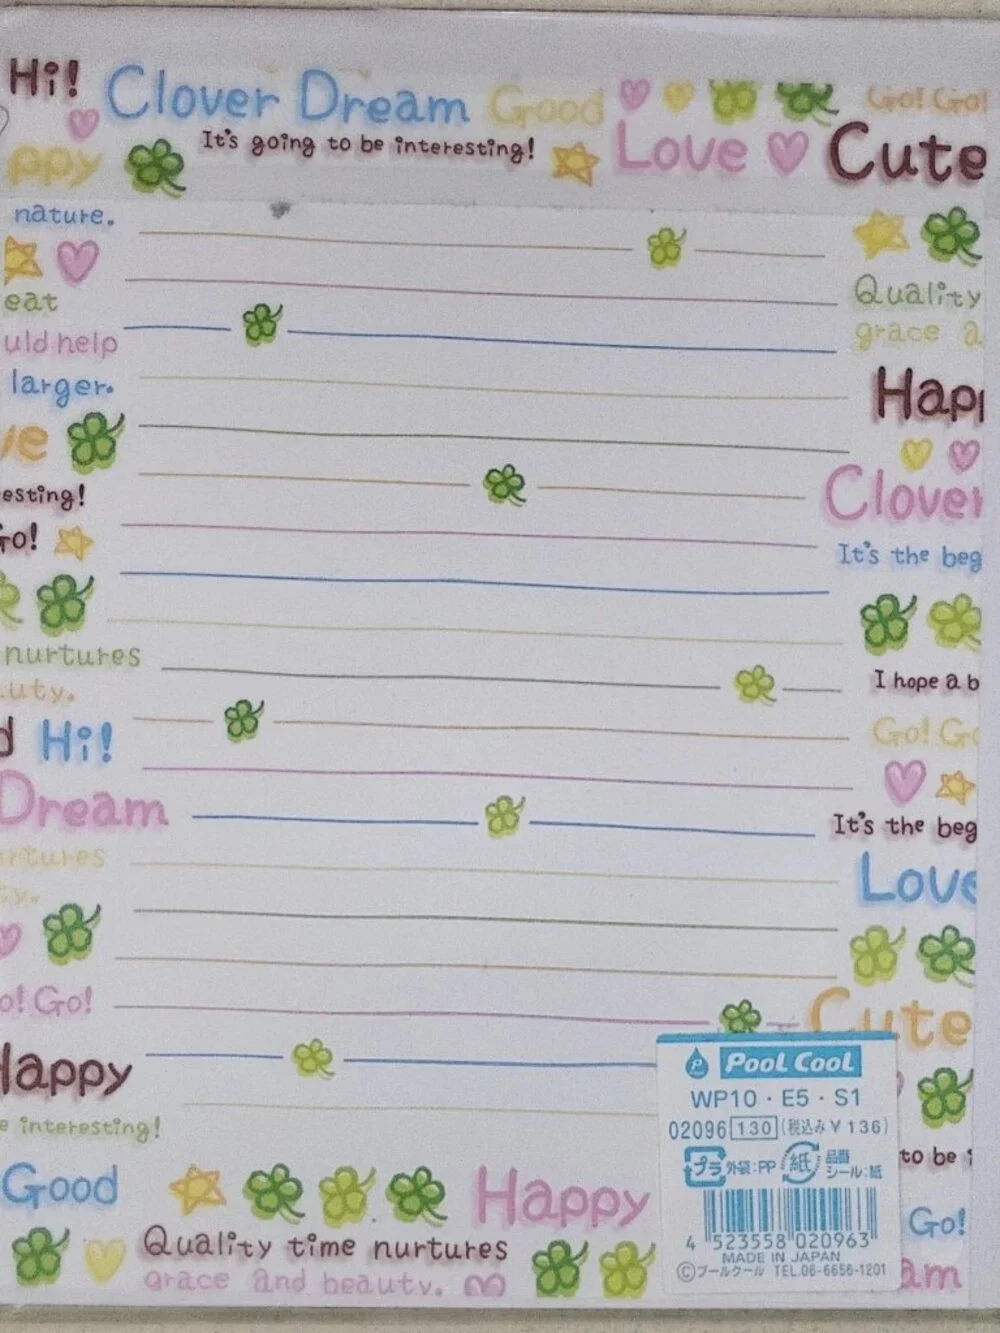 Hi! Clover Dream Good Go! Go!
ppy It's going to be interesting! Love Cute
nature.
eat Quality
uld help grace a
larger.
Hap
ve
esting! Clover
Go! It's the beg
nurtures
uty. I hope a b
d Hi! Go! Go
Dream It's the beg
rtures
ty. Love
o! Go! Cute
Happy
e interesting! to be i
Good Happy Go!
Quality time nurtures
grace and beauty. am
Pool Cool
WP10・E5・S1
02096 130 (税込み¥136)
プラ 外袋:PP 紙 品番シール:紙
4 523558 020963
MADE IN JAPAN
©プールクール TEL.06-6656-1201